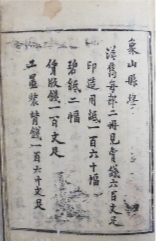 象山縣學
漢雋每部二冊見賣錢六百文足
印造用紙一百六十幅
碧紙二幅
賃版錢一百文足
工墨裝背錢一百六十文足